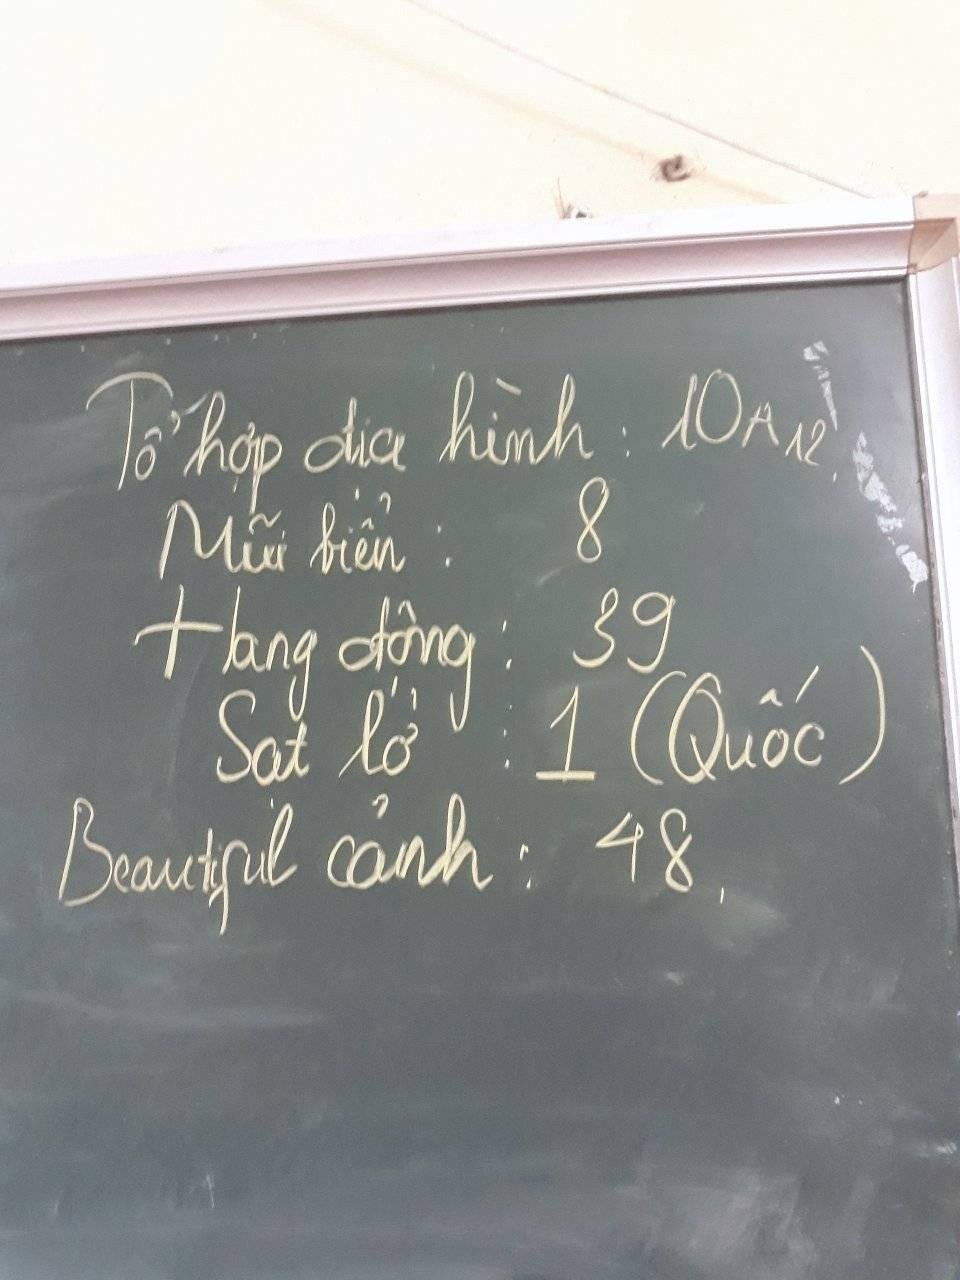 Tổ hợp địa hình: 10A12.
Mũi biển: 8
Hang động: 39
Sạt lở: 1 (Quốc)
Beautiful cảnh: 48.